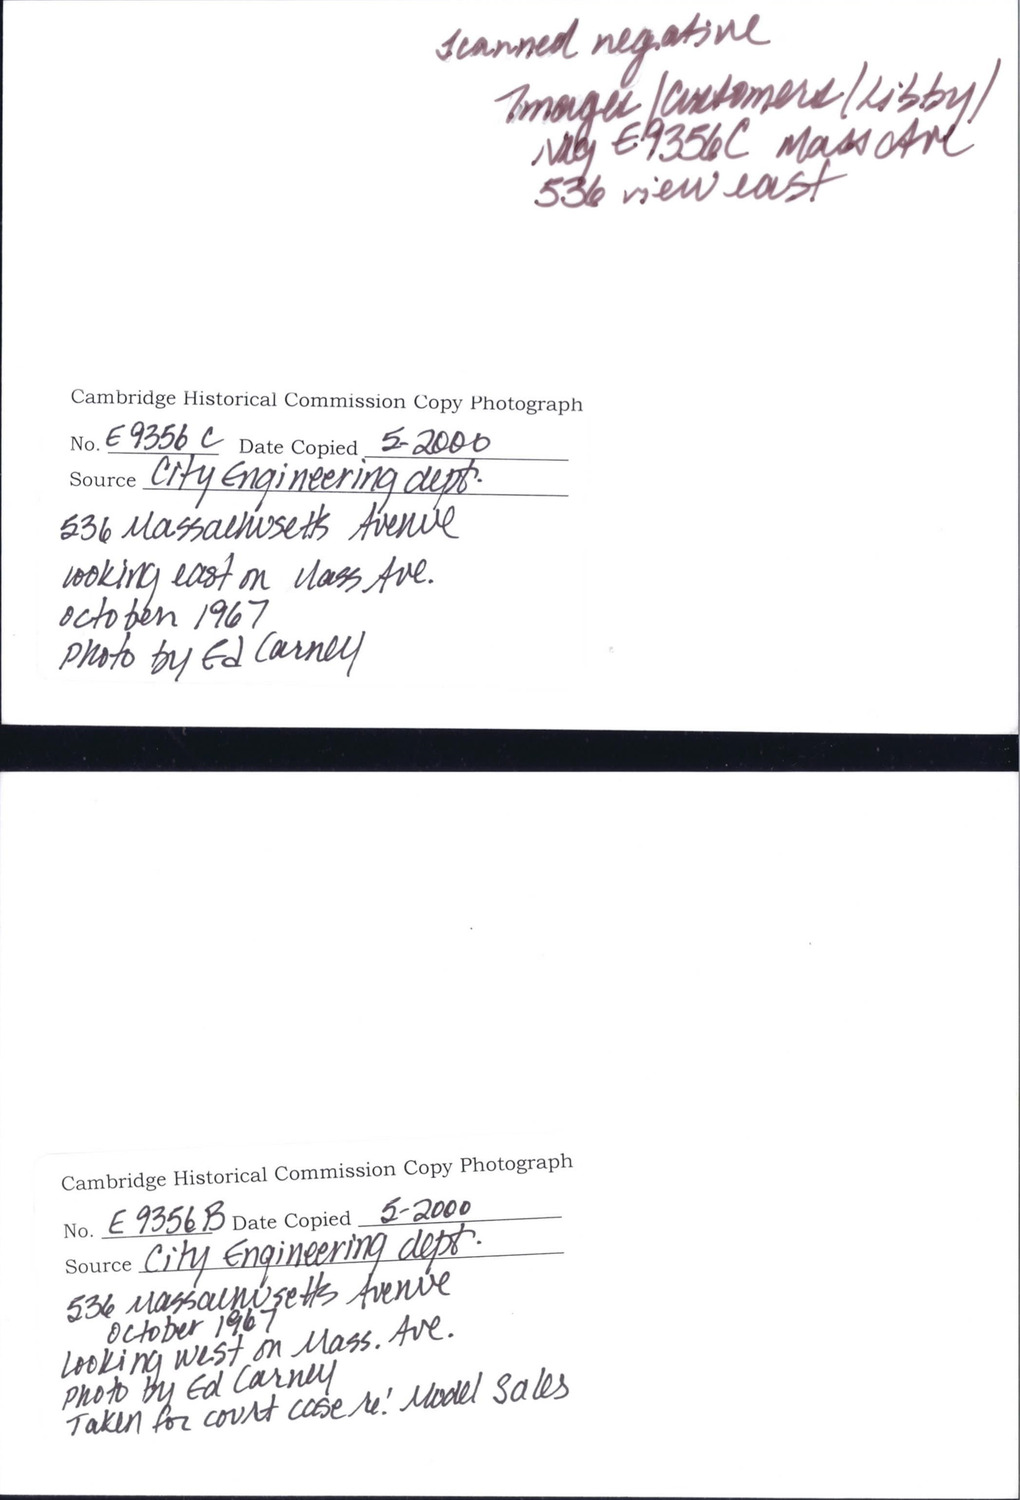 Scanned negative
Images/Customers/Libby/
Neg E9356C Mass Ave
536 view east
Cambridge Historical Commission Copy Photograph
No. E9356 C Date Copied 5-2000
Source City Engineering dept.
536 Massachusetts Avenue
looking east on Mass Ave.
October 1967
Photo by Ed Carney
Cambridge Historical Commission Copy Photograph
No. E 9356 B Date Copied 5-2000
Source City Engineering dept.
536 Massachusetts Avenue
October 1967
Looking west on Mass. Ave.
Photo by Ed Carney
Taken for court case re: Model Sales